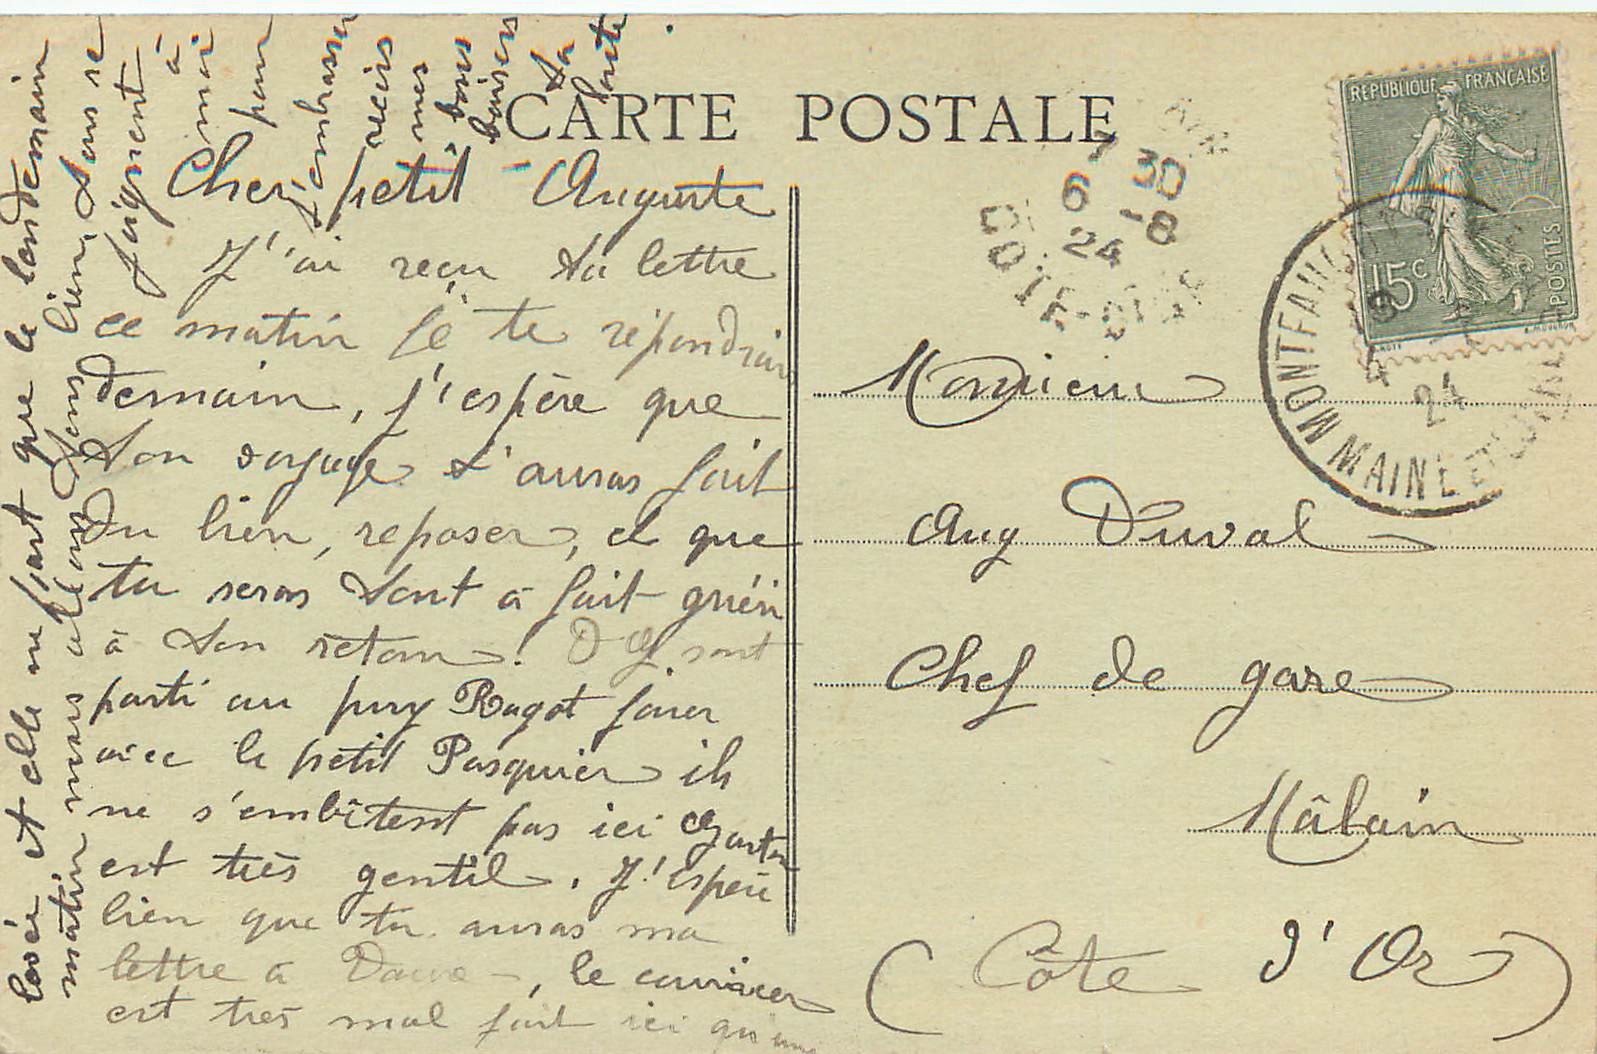 CARTE POSTALE
Cher petit Auguste
J'ai reçu ta lettre
ce matin je te répondrai
demain, j'espère que
ton voyage t'auras fait
du bien, reposer, et que
tu seras tout à fait guéri
à ton retour. D sont
parti au puy Ragot jouer
avec le petit Pasquier ils
ne s'embêtent pas ici Gaston
est très gentil. J'espère
bien que tu auras ma
lettre à, le courrier
est très mal fait ici qu'une
levée et elle ne part que le lendemain
matin nous allons tous bien, tous se
joignent
à
moi
pour
t'embrasser
reçois
mes
bons
baisers
Ta
RÉPUBLIQUE FRANÇAISE
15c
POSTES
7 30
6 -8
24
COTE-D'OR
MONTFAUCON
MAINE ET LOIRE
24
Monsieur
Aug Duval
Chef de gare
Mâlain
(Côte d'Or)